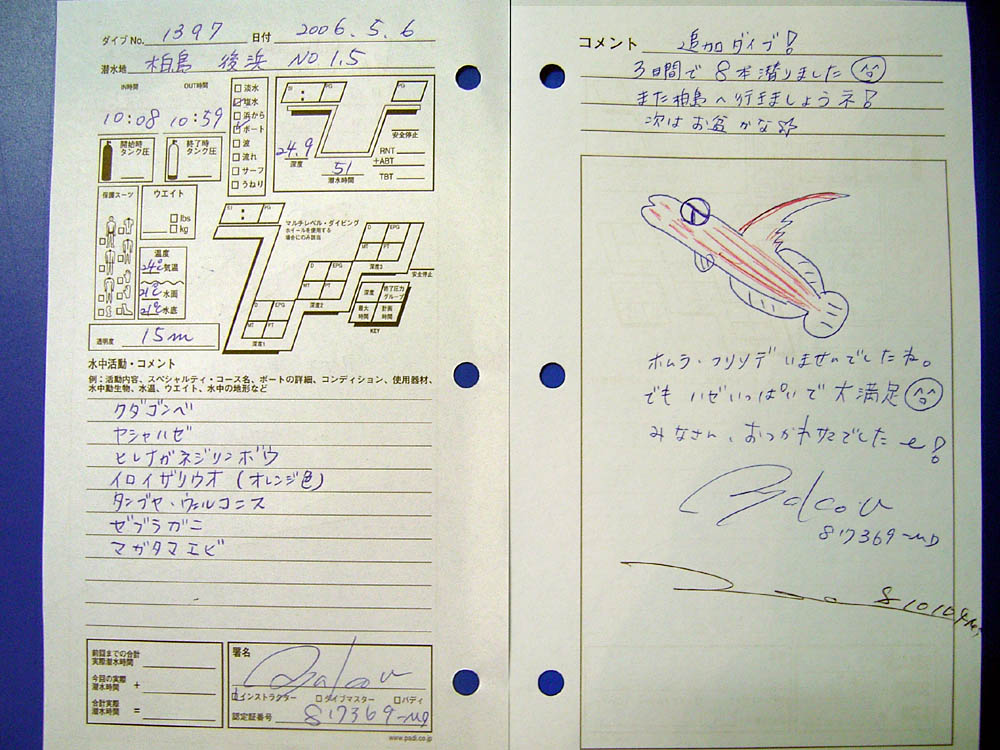 ダイブNo. 1397 日付 2006.5.6
潜水地 柏島 後浜 NO 1.5
IN時間 OUT時間
10:08 10:59
淡水
塩水
浜から
ボート
波
流れ
サーフ
うねり
開始時
タンク圧
終了時
タンク圧
SI : PG PG
24.9
深度
51
潜水時間
安全停止
RNT
+ABT
TBT
保護スーツ
ウエイト
lbs
kg
温度
24℃ 気温
21℃ 水面
21℃ 水底
透明度 15m
SI : PG
マルチレベル・ダイビング
ホイールを使用する
場合にのみ該当
D EPG
MT PT
深度1
D EPG
MT PT
深度2
D EPG
MT PT
深度3
安全停止
深度 終了圧力グループ
最大時間 計画時間
KEY
水中活動・コメント
例：活動内容、スペシャルティ・コース名、ボートの詳細、コンディション、使用器材、
水中動生物、水温、ウエイト、水中の地形など
クダゴンベ
ヤシャハゼ
ヒレナガネジリンボウ
イロイザリウオ (オレンジ色)
タンブヤ・ウェルコニス
ゼブラガニ
マガタマエビ
前回までの合計
実際潜水時間
今回の実際
潜水時間 +
合計実際
潜水時間 =
署名
インストラクター ダイブマスター バディ
認定証番号 817369
www.padi.co.jp
コメント 追加ダイブ!
3日間で8本潜りました
また柏島へ行きましょうネ!
次はお盆かな
ホムラ・フリソデいませんでしたね。
でも ハゼいっぱいで大満足
みなさん、おつかれさまでした!
817369